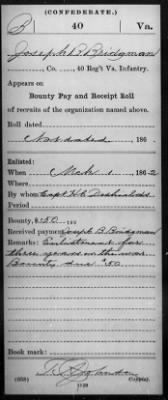 (CONFEDERATE.)
B 40 Va.
Joseph B. Bridgman
, Co. , 40 Reg't Va. Infantry.
Appears on
Bounty Pay and Receipt Roll
of recruits of the organization named above.
Roll dated
Not dated 186 .
Enlisted:
When Mch 1 , 186 2
Where
By whom Capt H C
Period
Bounty, $50 100
Received payment Joseph B. Bridgman
Remarks: Enlistment for
three years or the war
Bounty due $50.
Book mark:
(638) Copyist.